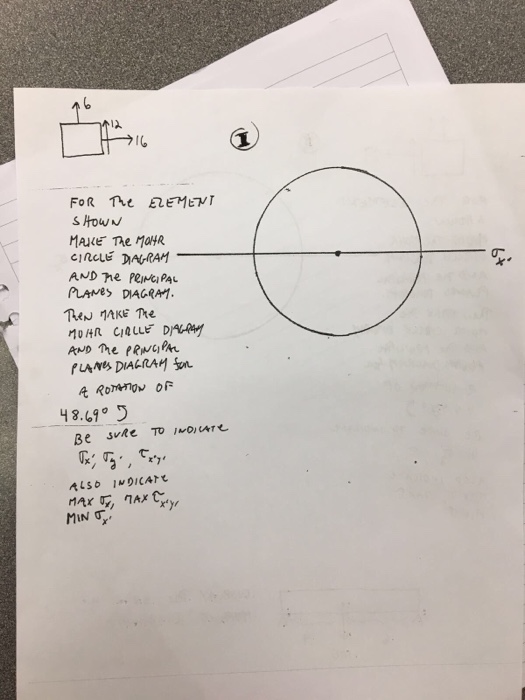 6
12
16
I
FOR THE ELEMENT
SHOWN
MAKE THE MOHR
CIRCLE DIAGRAM
AND THE PRINCIPAL
PLANES DIAGRAM.
THEN MAKE THE
MOHR CIRCLE DIAGRAM
AND THE PRINCIPAL
PLANES DIAGRAM for
A ROTATION OF
48.69° ↺
BE SURE TO INDICATE
σx', σy', τx'y'
ALSO INDICATE
MAX σx', MAX τx'y'
MIN σx'
σx'